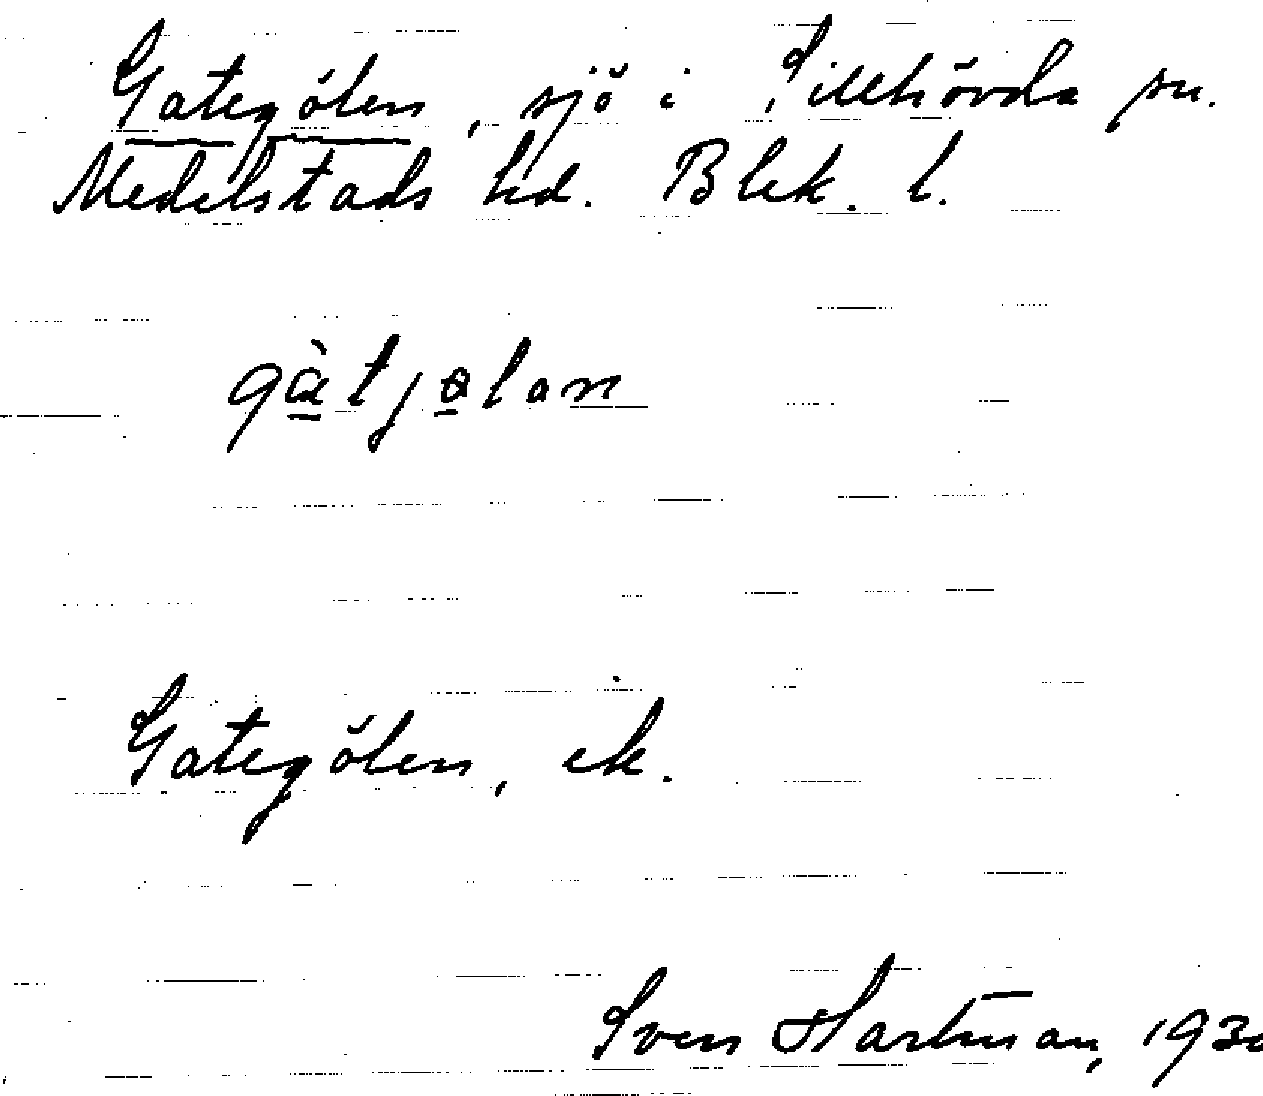 Gategölen, sjö i Sillhövda sn.
Medelstads hd. Blek. l.
gàtjolan
Gategölen, ek.
Sven Hartman, 193